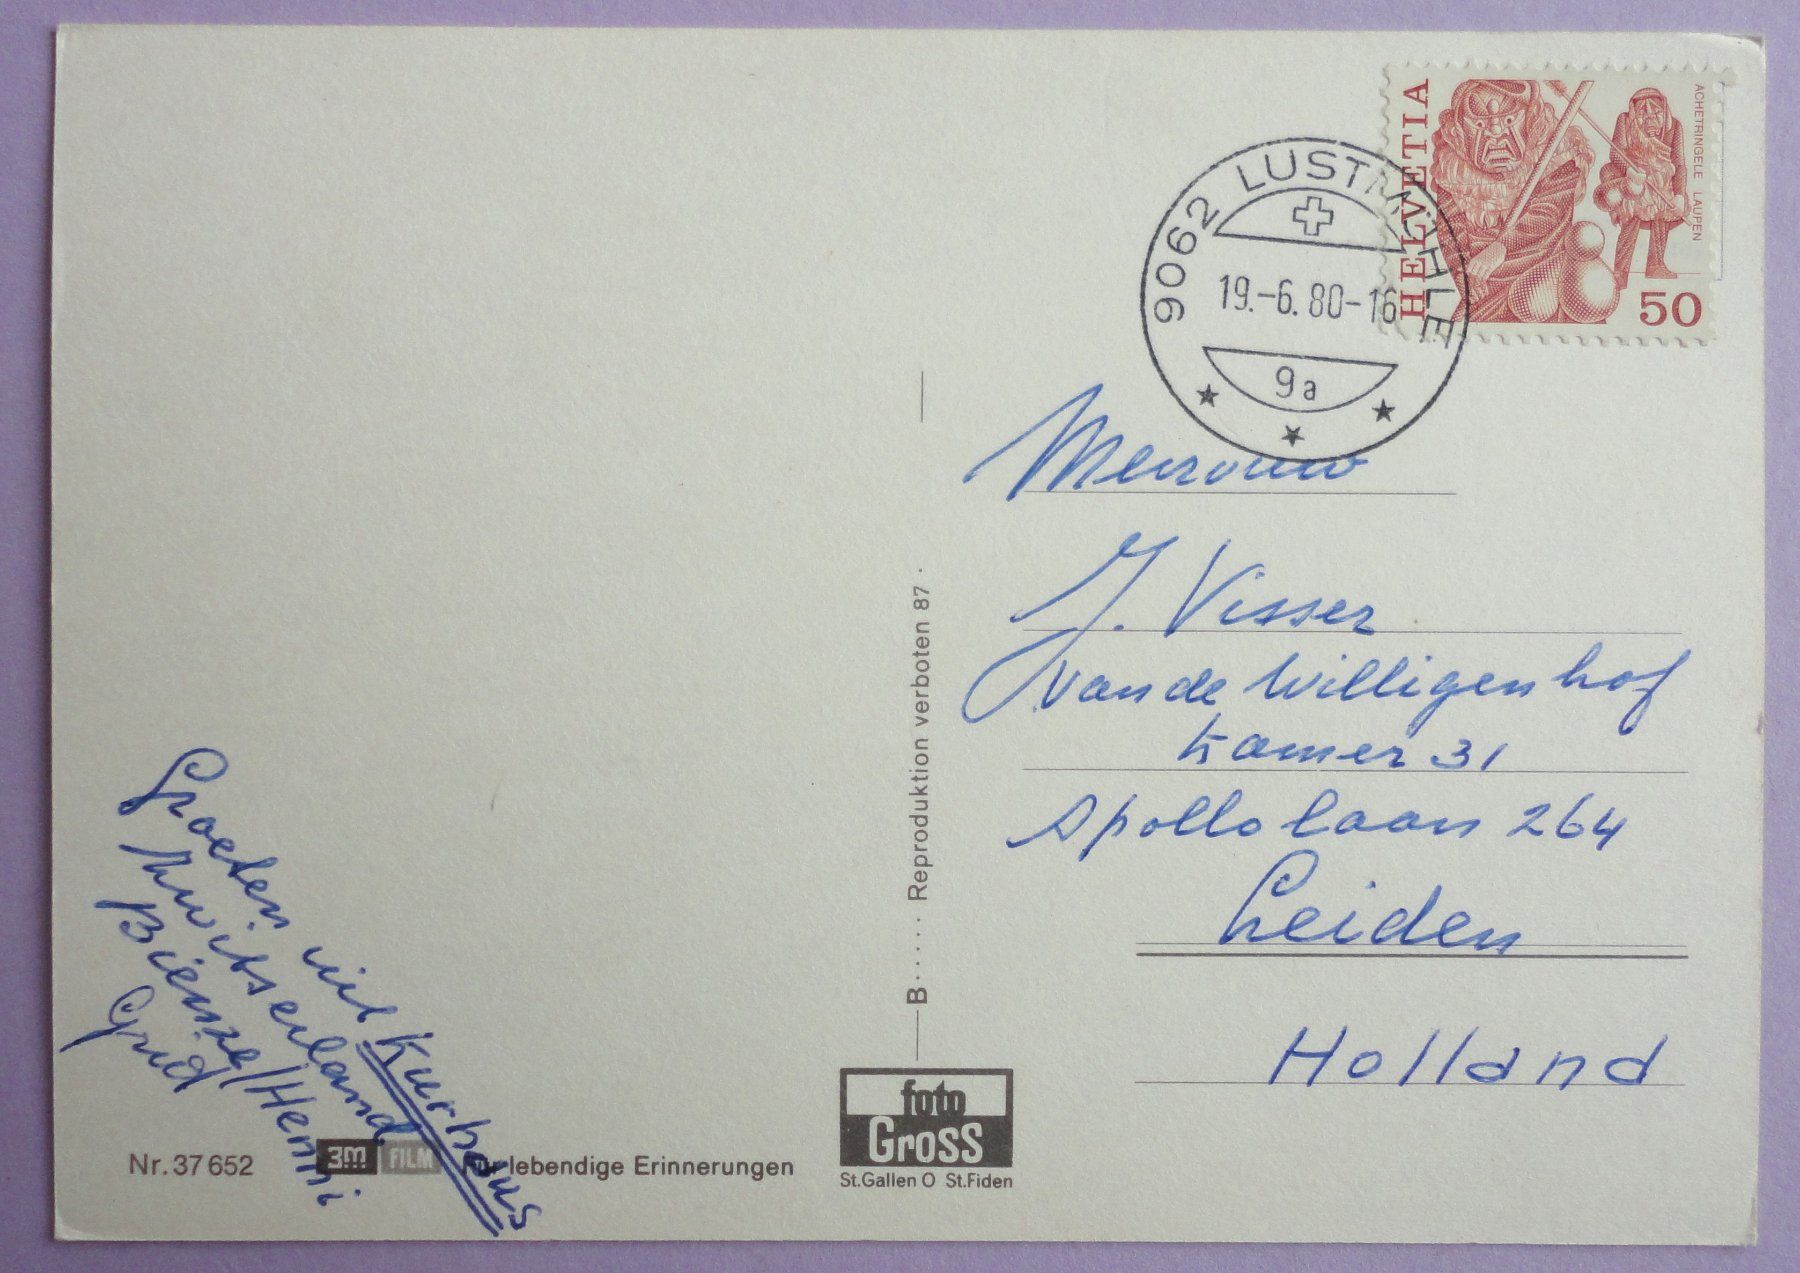 HELVETIA
ACHETRINGELE LAUPEN
50
9062 LUSTMÜHLE
19.-6.80-16
9a
Mevrouw
J. Visser
van de Willigenhof
Kamer 31
Apollolaan 264
Leiden
Holland
Groeten uit Kurhaus
Zwitserland
/Hemmi
Reproduktion verboten 87
B
Nr. 37 652
3M FILM Für lebendige Erinnerungen
foto
Gross
St.Gallen O St.Fiden